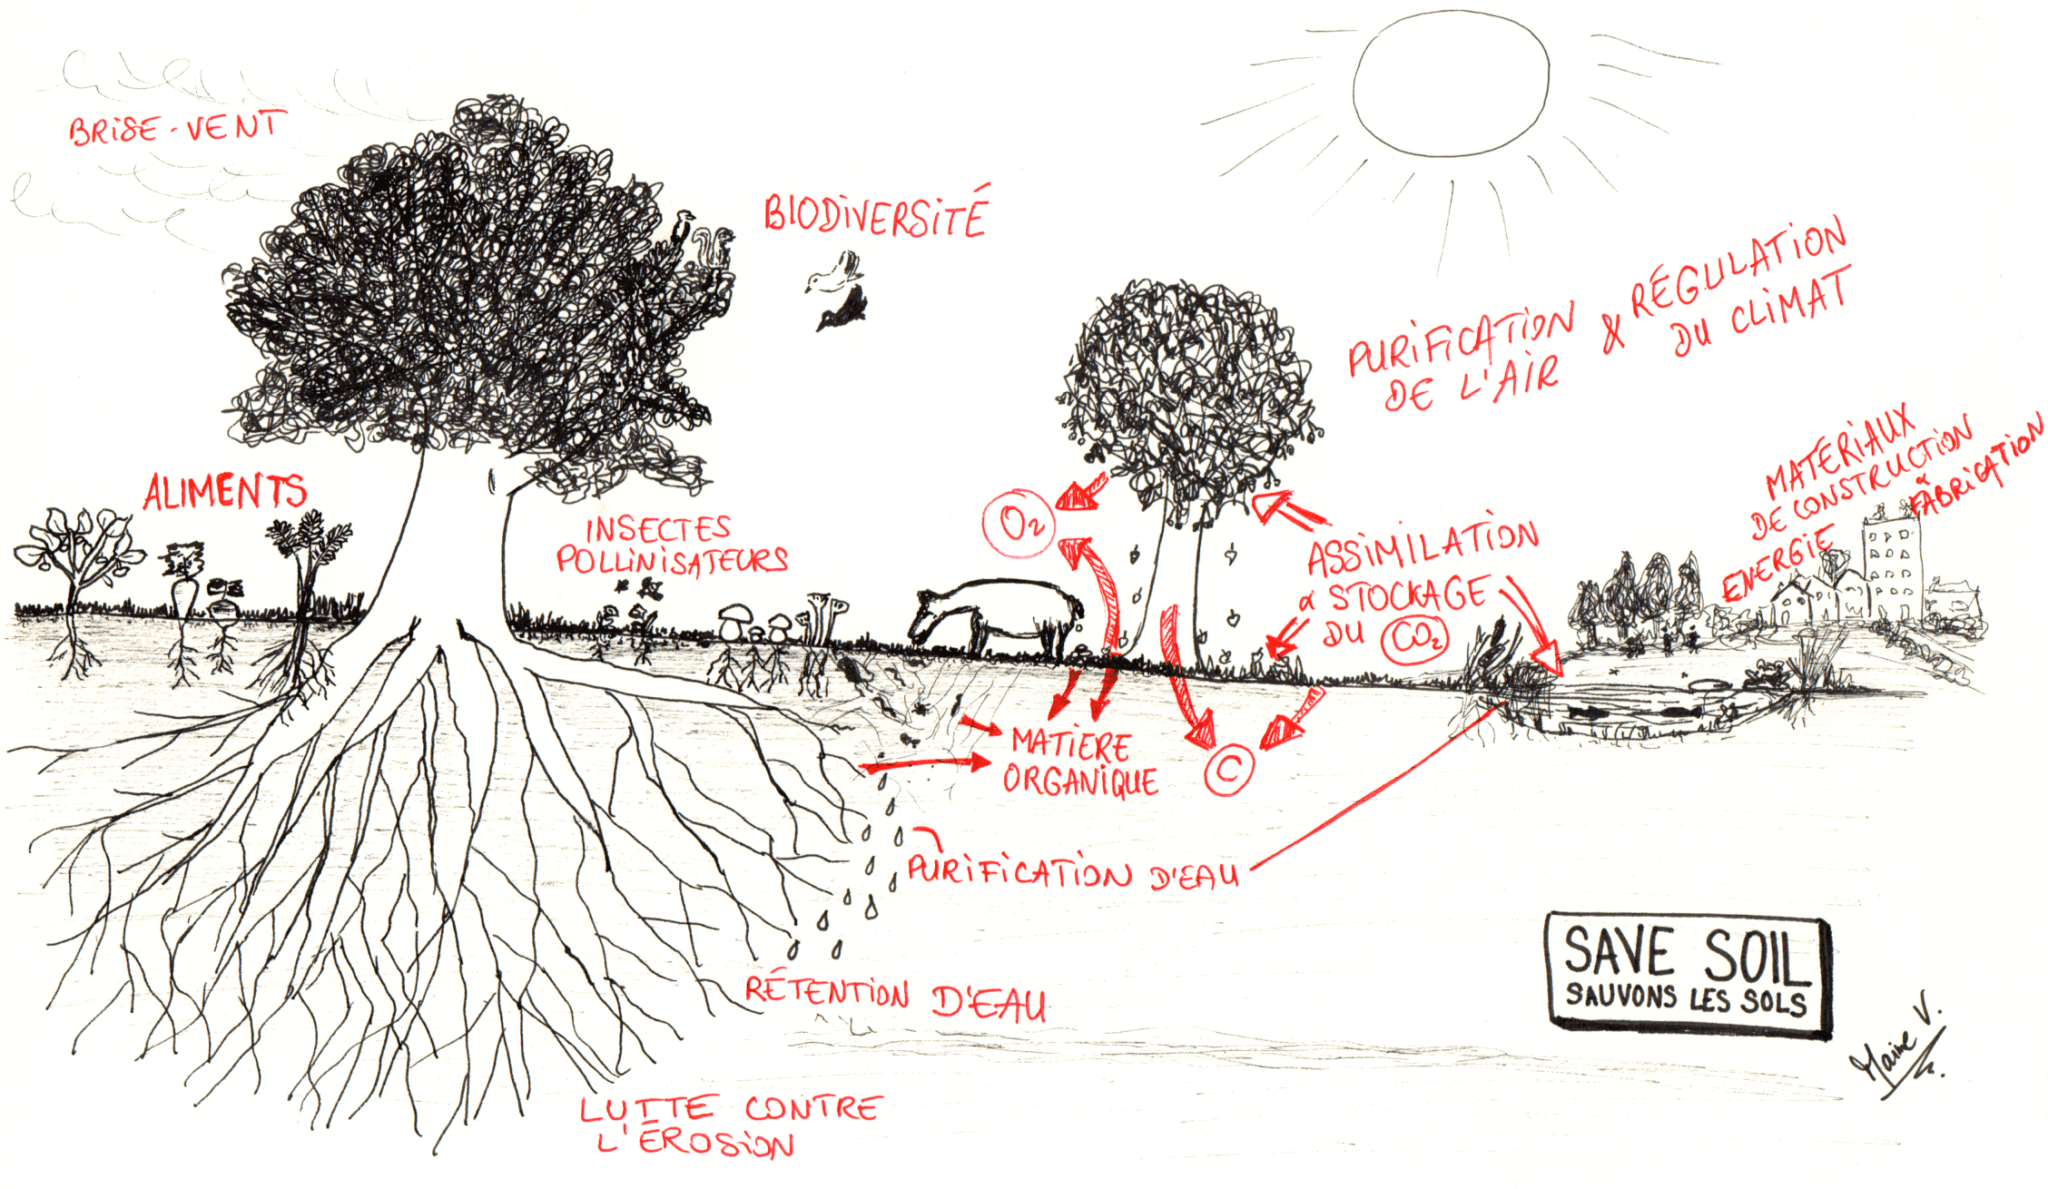 BRISE-VENT
BIODIVERSITÉ
PURIFICATION
DE L'AIR
& RÉGULATION
DU CLIMAT
ALIMENTS
INSECTES
POLLINISATEURS
O2
ASSIMILATION
& STOCKAGE
DU CO2
MATERIAUX
DE CONSTRUCTION
& FABRICATION
ENERGIE
MATIÈRE
ORGANIQUE
C
PURIFICATION D'EAU
RÉTENTION D'EAU
LUTTE CONTRE
L'ÉROSION
SAVE SOIL
SAUVONS LES SOLS